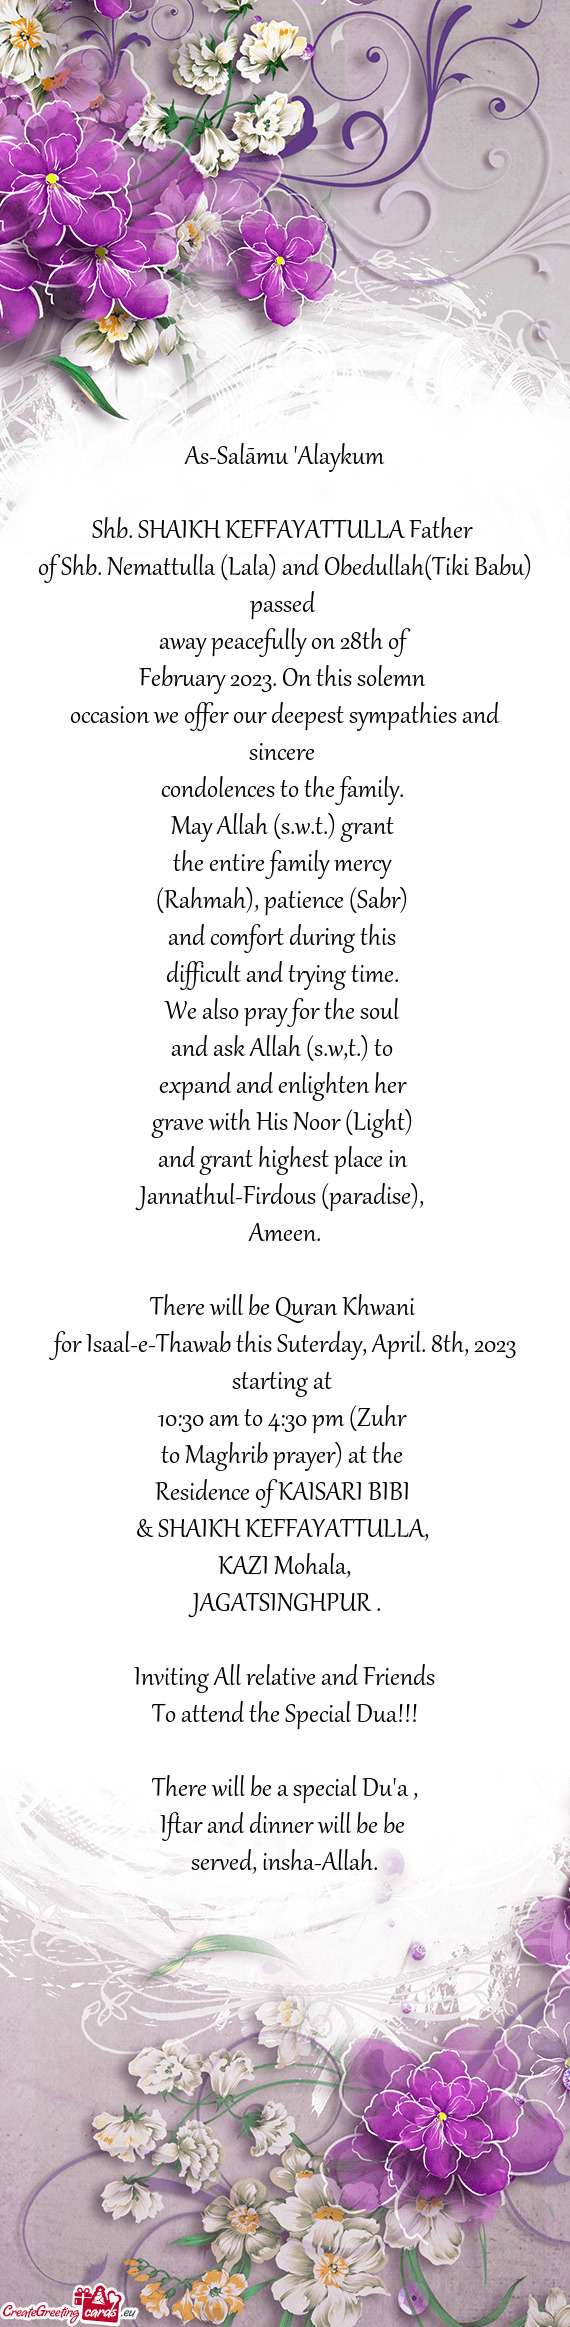 As-Salāmu 'Alaykum
Shb. SHAIKH KEFFAYATTULLA Father
of Shb. Nemattulla (Lala) and Obedullah(Tiki Babu)
passed
away peacefully on 28th of
February 2023. On this solemn
occasion we offer our deepest sympathies and
sincere
condolences to the family.
May Allah (s.w.t.) grant
the entire family mercy
(Rahmah), patience (Sabr)
and comfort during this
difficult and trying time.
We also pray for the soul
and ask Allah (s.w,t.) to
expand and enlighten her
grave with His Noor (Light)
and grant highest place in
Jannathul-Firdous (paradise),
Ameen.
There will be Quran Khwani
for Isaal-e-Thawab this Suterday, April. 8th, 2023
starting at
10:30 am to 4:30 pm (Zuhr
to Maghrib prayer) at the
Residence of KAISARI BIBI
& SHAIKH KEFFAYATTULLA,
KAZI Mohala,
JAGATSINGHPUR .
Inviting All relative and Friends
To attend the Special Dua!!!
There will be a special Du'a ,
Iftar and dinner will be be
served, insha-Allah.
CreateGreetingcards.eu